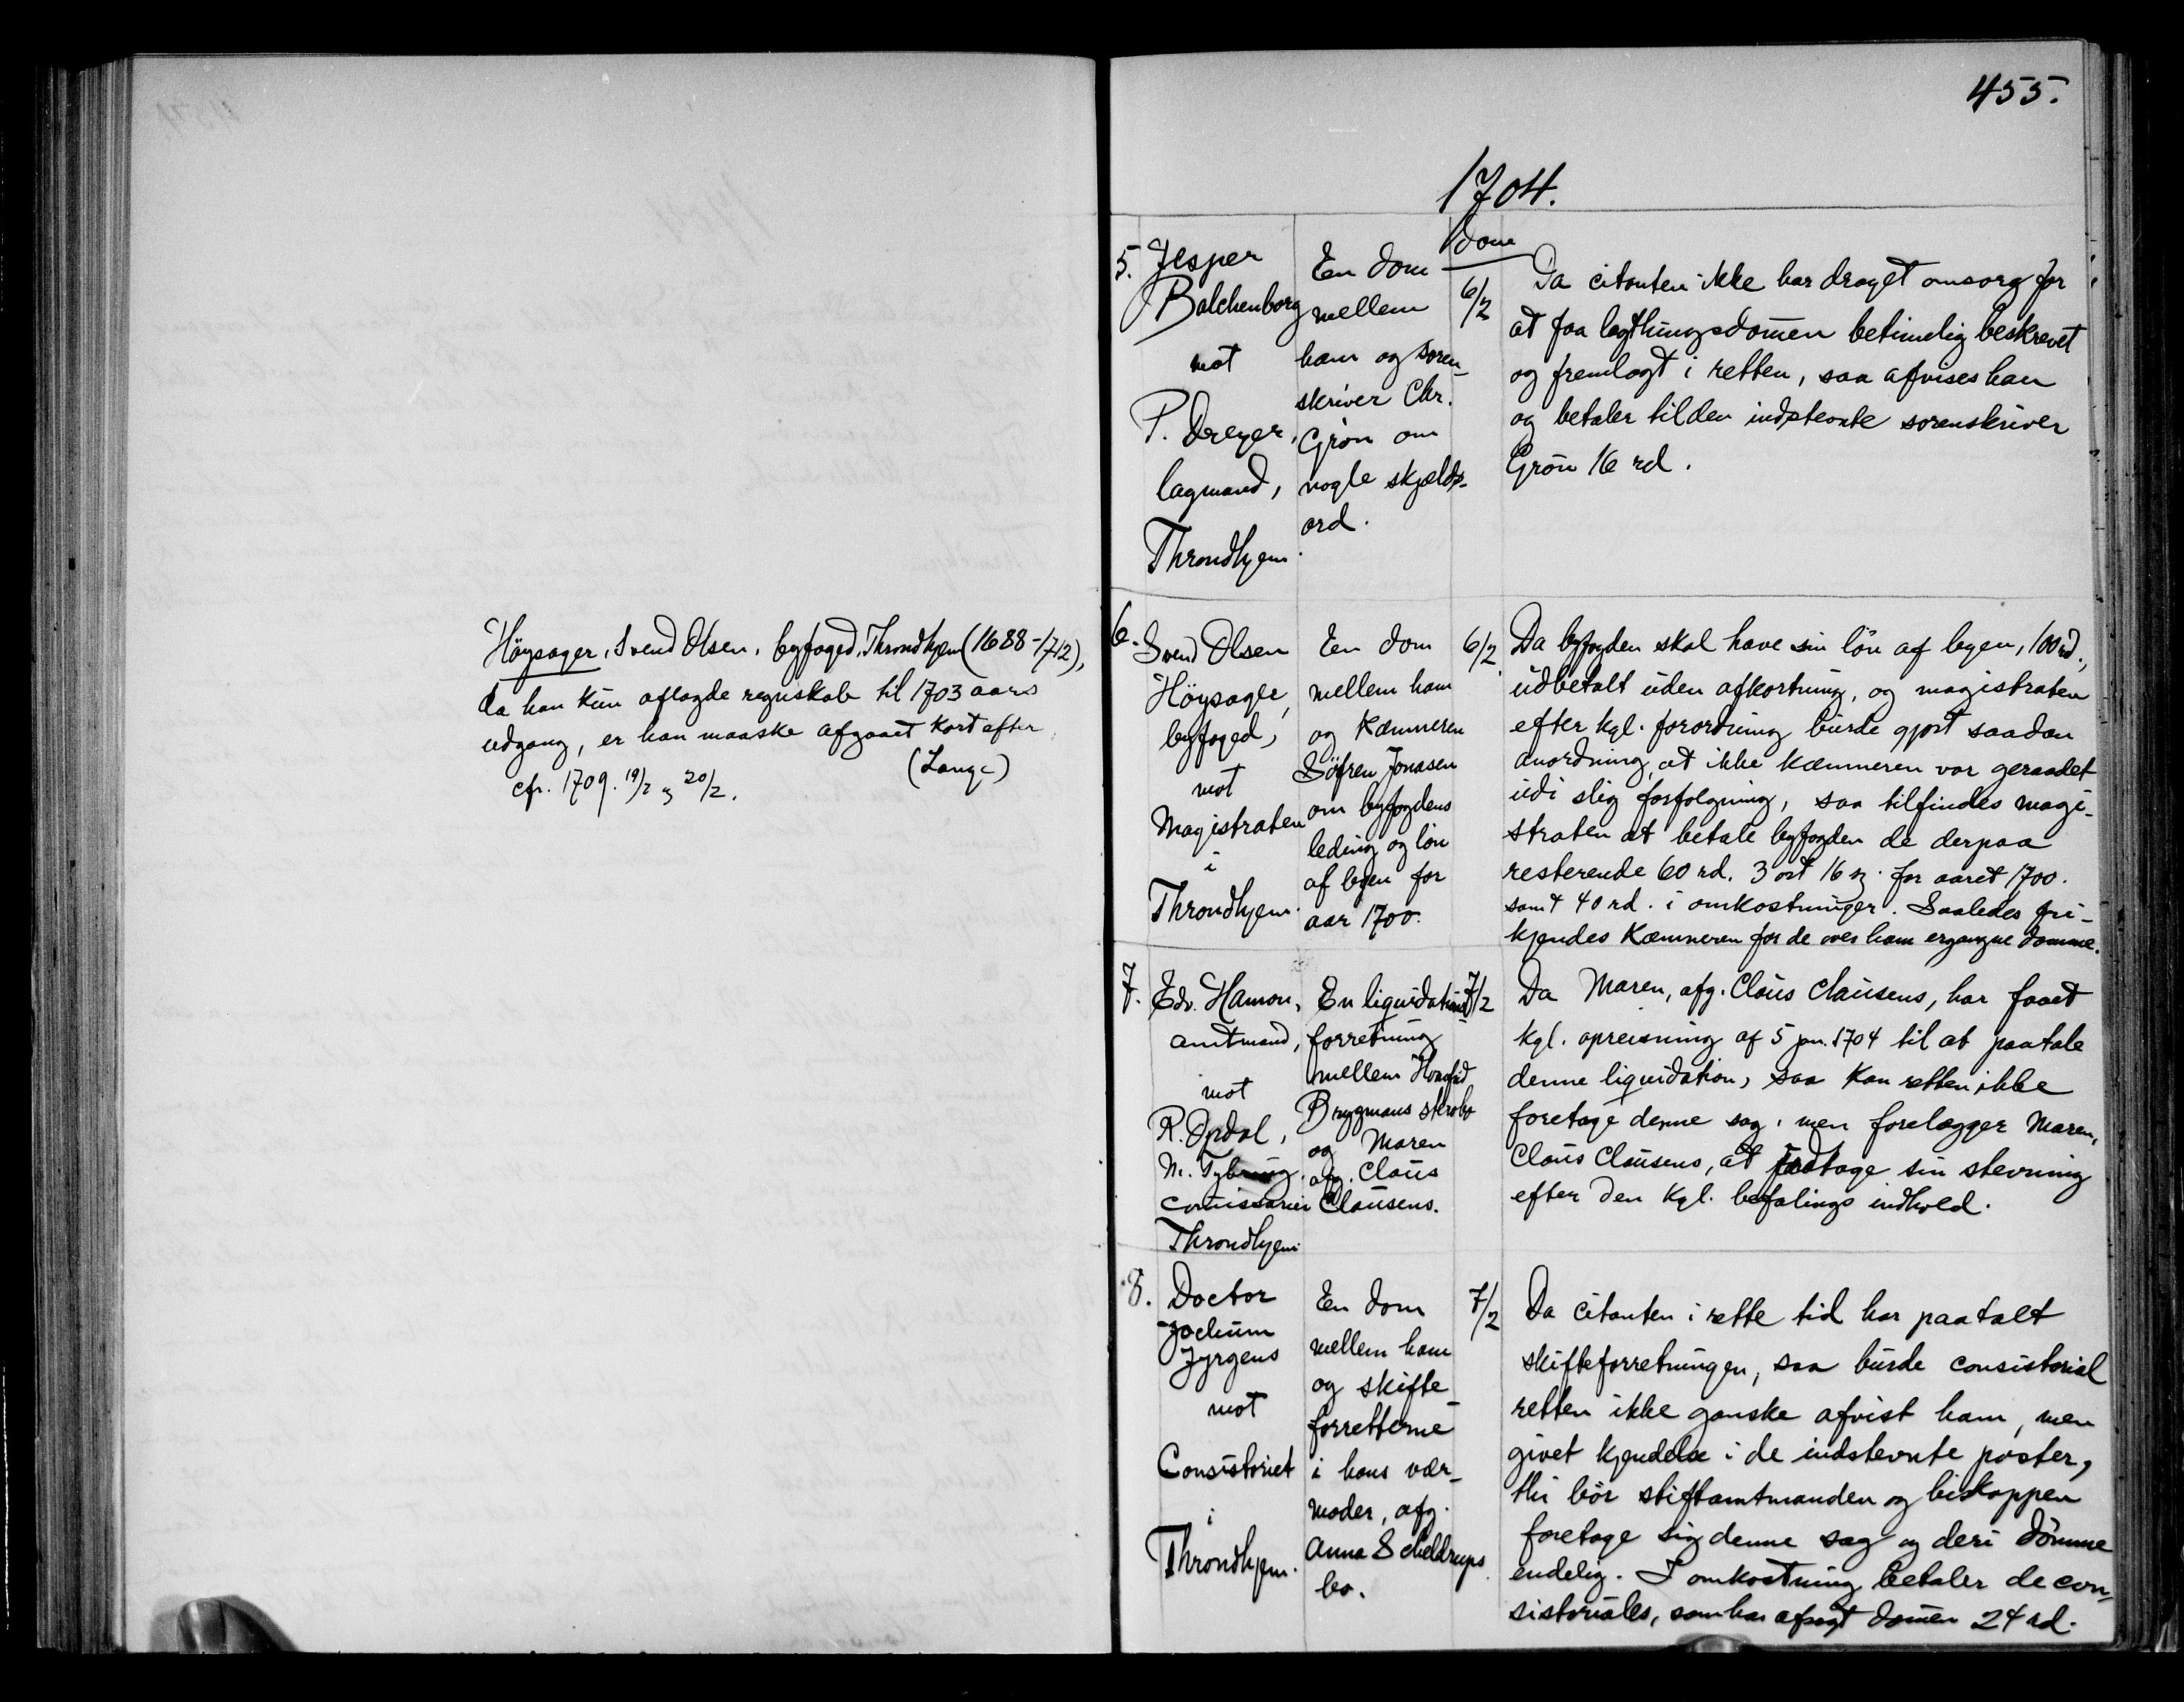 Höysager, Svend Olsen, byfoged, Throndhjem (1688-1712),
da han kun aflagde regnskab til 1703 aars
udgang, er han maaske afgaaet kort efter
(Lange)
cfr. 1709. 19/2 og 20/2.
455.
1704.
5. Jesper
Balchenborg
mot
P. Dreyer,
lagmand,
Throndhjem.
En dom
mellem
ham og soren-
skriver Chr.
Grön om
nogle skjælds-
ord.
6/2
Da citanten ikke har draget omsorg for
at faa lagthingsdomen betimelig beskrevet
og fremlagt i retten, saa afvises han
og betaler til den indstevnte sorenskriver
Grön 16 rd.
6. Svend Olsen
Höysager,
byfoged,
mot
Magistraten
i
Throndhjem.
En dom
mellem ham
og Kæmneren
Söfren Jonasen
om byfogdens
leding og lön
af byen for
aar 1700.
6/2
Da byfogden skal have sin lön af byen, 100 rd.,
udbetalt uden afkortning, og magistraten
efter kgl. forordning burde gjort saadan
anordning, at ikke kæmneren var geraadet
udi slig forfølgning, saa tilfindes magi-
straten at betale byfogden de derpaa
resterende 60 rd. 3 ort 16 s. for aaret 1700.
samt 40 rd. i omkostninger. Saaledes fri-
kjendes Kæmneren for de over ham ergangne domme.
7. Edv. Hamon,
amtmand,
mot
R. Opdal,
N. Tybring,
comissarier
Throndhjem
En liquidations
forretning
mellem
Brygmans sterbo
og Maren
afg. Claus
Clausens.
7/2
Da Maren, afg. Claus Clausens, har faaet
kgl. opreisning af 5 jan. 1704 til at paatale
denne liquidation, saa kan retten ikke
foretage denne sag, men forelægger Maren,
Claus Clausens, at foretage sin stevning
efter den kgl. befalings indhold.
8. Doctor
Jochum
Jyrgens
mot
Consistoriet
i
Throndhjem.
En dom
mellem ham
og skifte-
forretterne
i hans vær-
moder, afg.
Anna Scheldrups
bo.
7/2
Da citanten i rette tid har paatalt
skifteforretningen, saa burde consistorial
retten ikke ganske afvist ham, men
givet kjendelse i de indstevnte poster,
thi bör stiftamtmanden og biskoppen
foretage sig denne sag og deri dömme
endelig. I omkostning betaler de con-
sistoriales, som har afsagt domen 24 rd.